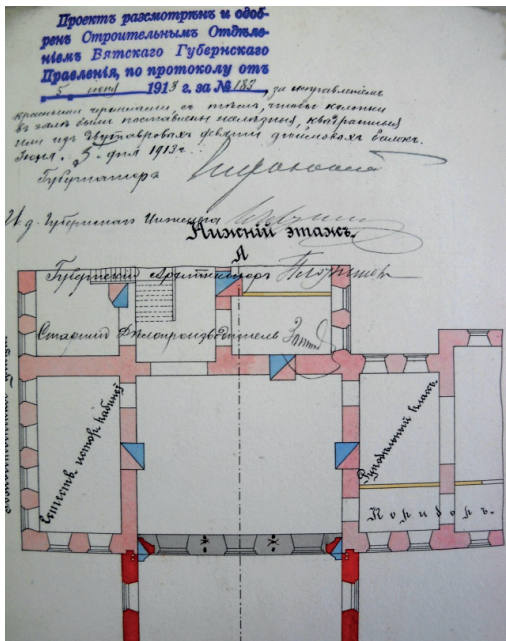 Проектъ разсмотрѣнъ и одоб-
ренъ Строительнымъ Отдѣле-
нiемъ Вятскаго Губернскаго
Правленiя, по протоколу отъ
5 iюня 1913 г. за № 183, за исправленiем
красными чернилами, съ тѣмъ, чтобы колонны
въ залѣ были поставлены
или изъ двухтавровыхъ дюймовыхъ балокъ.
Iюня 5 дня 1913 г.
Губернатора
И. д. Губернскаго Инженера
Нижнiй этажъ.
А
Губернскiй Архитекторъ
Старшiй Дѣлопроизводитель
Естеств. истор. кабинетъ
Рукодѣльный классъ
Корридоръ.